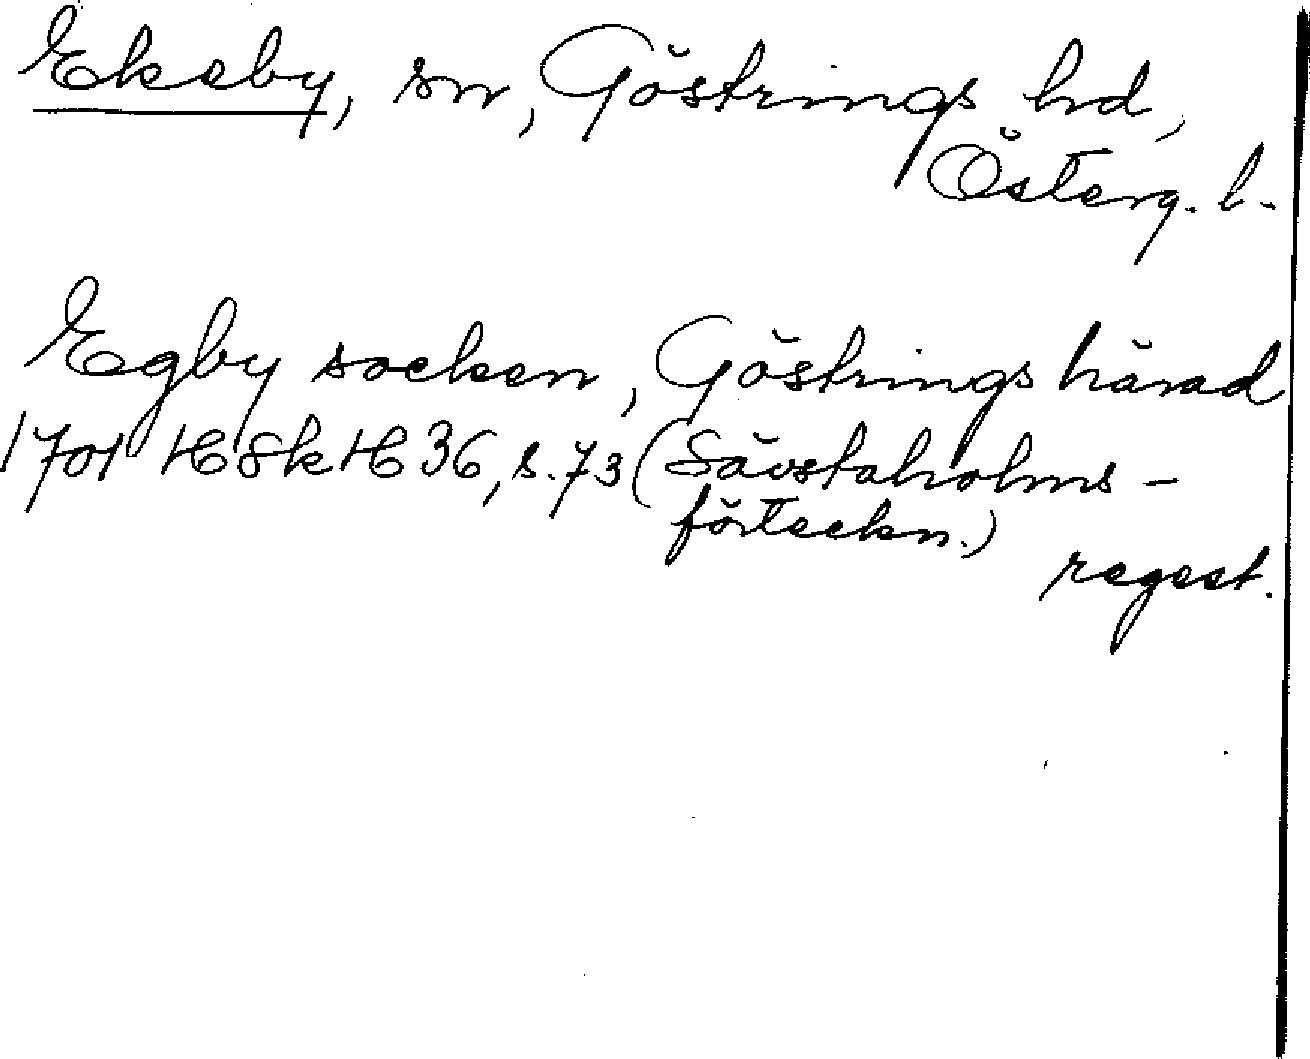 Ekeby, sn, Göstrings hd,
Österg. l.
Egby socken, Göstrings härad
1701 H8k H 36, s. 73 (Sävstaholms-
förteckn.)
regest.